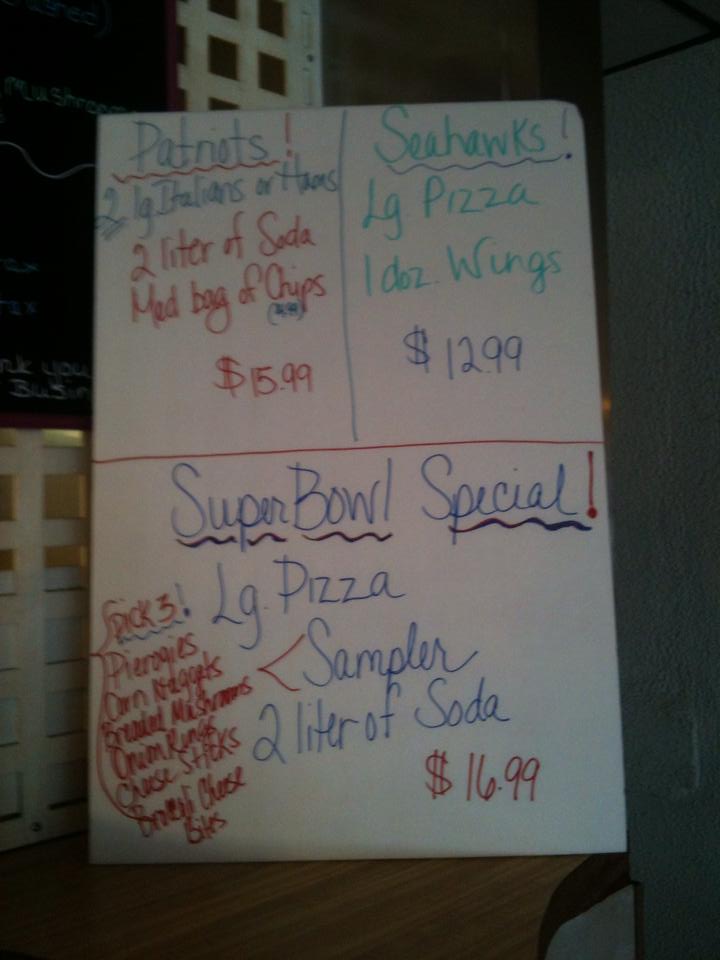 Mushroom
tax
Busin
Patriots!
2 lg. Italians or Hams
2 liter of Soda
Med bag of Chips
(4.99)
$15.99
Seahawks!
Lg. Pizza
1 doz. Wings
$12.99
SuperBowl Special!
Lg. Pizza
Sampler
2 liter of Soda
$16.99
Pick 3!
Pierogies
Corn Nuggets
Breaded Mushrooms
Onion Rings
Cheese Sticks
Brocoli Cheese
Bites